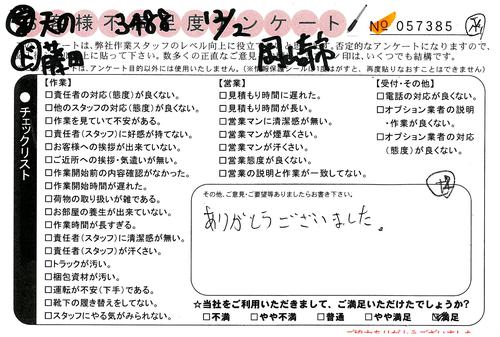 お客様不満足度アンケート
天の 3488 12/2
ド 藤田 岡崎市
No 057385
ケートは、弊社作業スタッフのレベル向上に役立
否定的なアンケートになりますので、
いつでも結構です。
は、アンケート目的以外には使用いたしません。
チェックリスト
【作業】
□責任者の対応(態度)が良くない。
□他のスタッフの対応(態度)が良くない。
□作業を見ていて不安がある。
□責任者(スタッフ)に好感が持てない。
□お客様への挨拶が出来ていない。
□ご近所への挨拶・気遣いが無い。
□作業開始前の内容確認がなかった。
□作業開始時間が遅れた。
□荷物の取り扱いが雑である。
□お部屋の養生が出来ていない。
□作業時間が長すぎる。
□責任者(スタッフ)に清潔感が無い。
□責任者(スタッフ)が汗くさい。
□トラックが汚い。
□梱包資材が汚い。
□運転が不安(下手)である。
□靴下の履き替えをしてない。
□スタッフにやる気がみられない。
【営業】
□見積もり時間に遅れた。
□見積もり時間が長い。
□営業マンに清潔感が無い。
□営業マンが煙草くさい。
□営業マンが汗くさい。
□営業態度が良くない。
□営業の説明と作業が一致してない。
【受付・その他】
□電話の対応が良くない。
□オプション業者の説明
・作業が良くない。
□オプション業者の対応
(態度)が良くない。
その他、ご意見・ご要望等ありましたらお書き下さい。
ありがとうございました。
☆当社をご利用いただきまして、ご満足いただけたでしょうか?
□不満 □やや不満 □普通 □やや満足 ☑満足
ご協力ありがとうございました